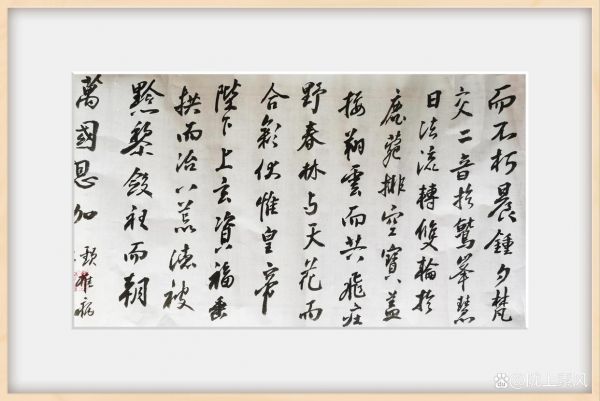 而不朽晨鍾夕梵
交二音於鷲峯慧
日法流轉雙輪於
鹿菀排空寶盖
接翔雲而共飛莊
野春林与天花而
合彩伏惟皇帝
陛下上玄資福垂
拱而治八荒德被
黔黎斂衽而朝
萬國恩加